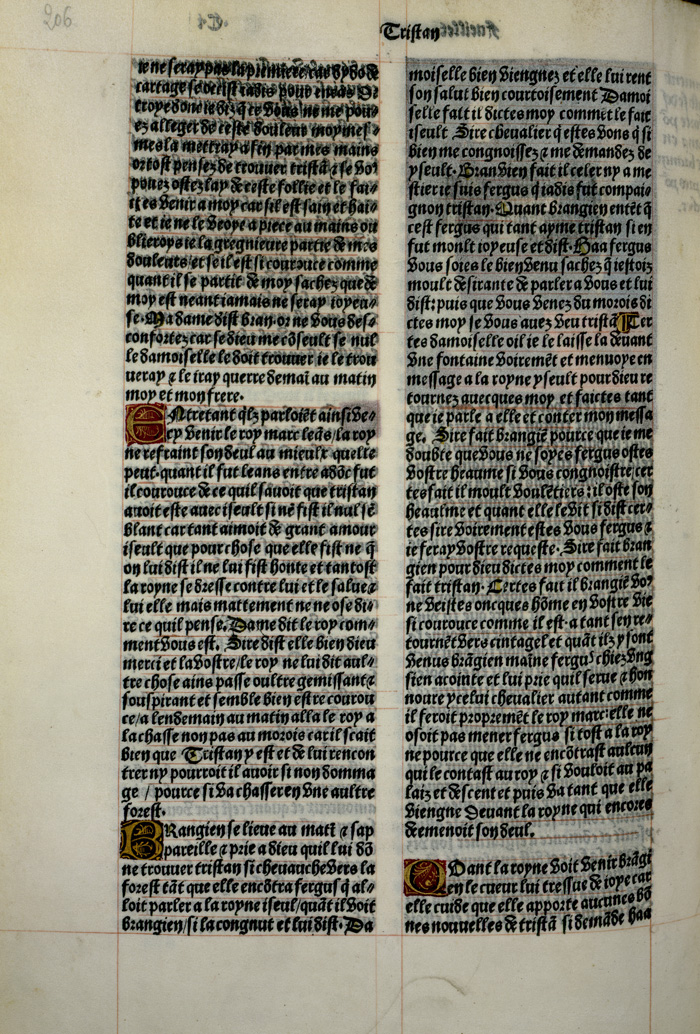 206
Tristan
ie ne seray pas la premiere
cartage se occist iadis pour eneas
troye donc ie dy q̃ se vous ne me pou
ez alleger de ceste douleur moy mes
mes la mettray a fin par mes mains
or tost pensez de trouuer tristã ⁊ se vo9
pouez ostez lay de ceste follie et le fai
ctes venir a moy car sil est sain et hai
te et ie ne le veoye a piece au mains ou
blieroys ie la gregnieure partie de mes
douleurs et se il est si courouce comme
quant il se partit de moy sachez que de
moy est neant iamais ne seray ioyeu
se. Ma dame dist bran. or ne vous des
confortez car se dieu me cõseult se nul
le damoiselle le doit trouuer ie le trou
ueray ⁊ le iray querre demaĩ au matin
moy et mon frere.
ENtretant q̃lz parloiẽt ainsi ve
cy venir le roy marc leãs/la roy
ne refraint son deul au mieulx quelle
peut. quant il fut leans entre adõc fut
il courouce de ce quil sauoit que tristan
auoit este auec iseult si nẽ fist il nul sẽ
blant car tant aimoit de grant amour
iseult que pour chose que elle fist ne q̃
on lui dist il ne lui fist honte et tantost
la royne se dresse contre lui et le salue ⁊
lui elle mais mattement ne ne ose di
re ce quil pense. Dame dit le roy com
ment vous est. Sire dist elle bien dieu
merci et la vostre/le roy ne lui dit aul
tre chose ains passe oultre gemissant ⁊
souspirant et semble bien estre courou
ce/a lendemain au matin alla le roy a
la chasse non pas au morois car il scait
bien que Tristan y est et de lui rencon
trer ny pourroit il auoir si non domma
ge / pource si va chasser en vne aultre
forest.
BRangien se lieue au matĩ ⁊ sap
pareille ⁊ prie a dieu quil lui dõ
ne trouuer tristan si cheuauche vers la
forest tãt que elle encõtra fergus q̃ al
loit parler a la royne iseul/quãt il voit
brangien/si la congnut et lui dist. Da
moiselle bien viengnez et elle lui rent
son salut bien courtoisement Damoi
selle fait il dictes moy commẽt le fait
iseult. Sire cheualier q̃ estes vous q̃ si
bien me congnoissez ⁊ me demandez de
yseult. Branvien fait il celer ny a me
stier ie suis fergus q̃ iadis fut compai
gnon tristan. Quant brangien entẽt q̃
cest fergus qui tant ayme tristan si en
fut moult ioyeuse et dist. Haa fergus
vous soies le bien venu sachez q̃ iestoiz
moult desirante de parler a vous et lui
dist: puis que vous venez du morois di
ctes moy se vous auez veu tristã ¶ Cer
tes damoiselle oil ie le laisse la deuant
vne fontaine voiremẽt et menuoye en
message a la royne yseult pour dieu re
tournez auecques moy et faictes tant
que ie parle a elle et conter mon messa
ge. Sire fait brangiẽ pource que ie me
doubte que vous ne soyes fergus ostes
vostre heaume si vous congnoistre/cer
tes fait il moult voulẽtiers: il oste son
heaulme et quant elle le vit si dist cer
tes sire voirement estes vous fergus ⁊
ie feray vostre requeste. Sire fait bran
gien pour dieu dictes moy comment le
fait tristan. Certes fait il brangiẽ vo9
ne veistes oncques hõme en vostre vie
si courouce comme il est. a tant sen re
tournẽt vers cintagel et quãt ilz y sont
venus brãgien maine fergu9 chiez vng
sien acointe et lui prie quil serue ⁊ hon
noure ycelui cheualier autant comme
il feroit propremẽt le roy marc: elle ne
osoit pas mener fergus si tost a la roy
ne pource que elle ne encõtrast aulcun
qui le contast au roy ⁊ si vouloit au pa
laiz et descent et puis va tant que elle
viengne deuant la royne qui encores
demenoit son deul.
QUant la royne voit venir brãgi
en le cueur lui tressue de ioye car
elle cuide que elle apporte aucunes bõ
nes nouuelles de tristã si demãde haa